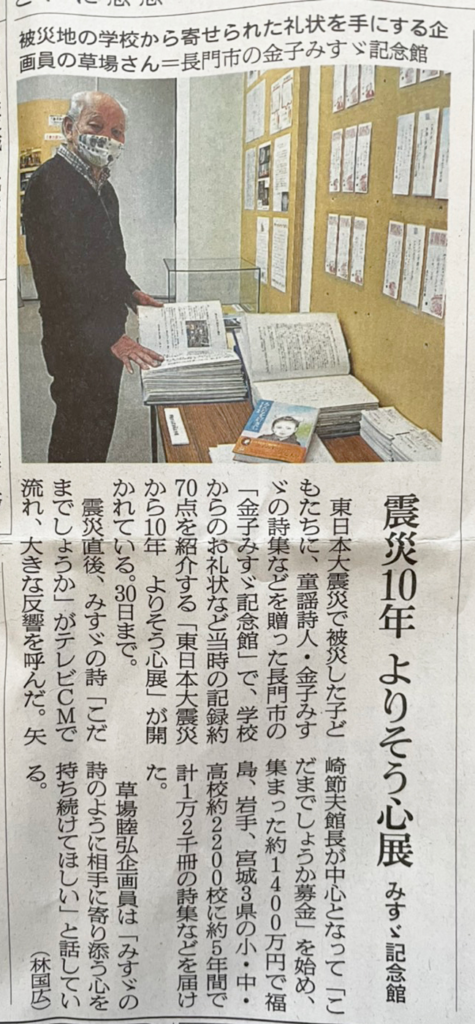 被災地の学校から寄せられた礼状を手にする企
画員の草場さん＝長門市の金子みすゞ記念館
震災10年 よりそう心展 みすゞ記念館
東日本大震災で被災した子ど
もたちに、童謡詩人・金子みす
ゞの詩集などを贈った長門市の
「金子みすゞ記念館」で、学校
からのお礼状など当時の記録約
70点を紹介する「東日本大震災
から10年 よりそう心展」が開
かれている。30日まで。
震災直後、みすゞの詩「こだ
までしょうか」がテレビCMで
流れ、大きな反響を呼んだ。矢
崎節夫館長が中心となって「こ
だまでしょうか募金」を始め、
集まった約1400万円で福
島、岩手、宮城3県の小・中・
高校約2200校に約5年間で
計1万2千冊の詩集などを届け
た。
草場睦弘企画員は「みすゞの
詩のように相手に寄り添う心を
持ち続けてほしい」と話してい
る。
（林国広）